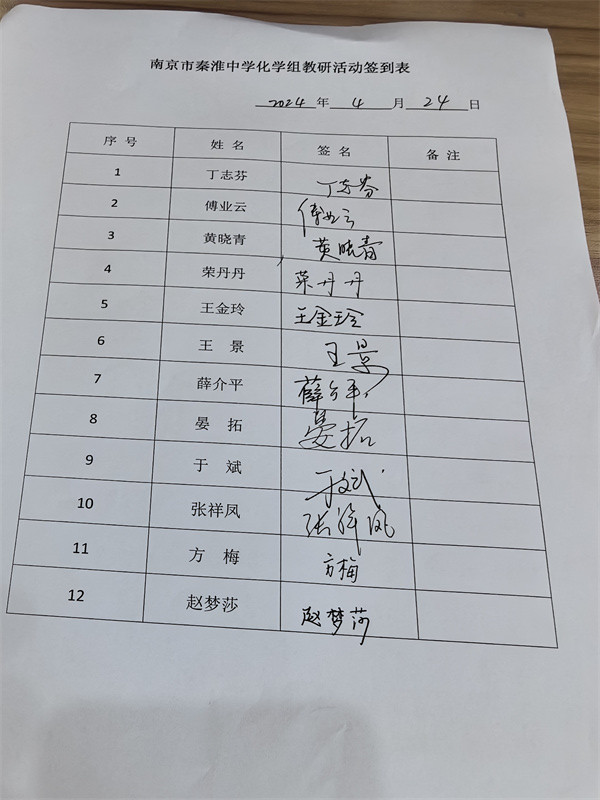 南京市秦淮中学化学组教研活动签到表
2024 年 4 月 24 日
序号 姓名 签名 备注
1 丁志芬 丁志芬
2 傅业云 傅业云
3 黄晓青 黄晓青
4 荣丹丹 荣丹丹
5 王金玲 王金玲
6 王 景 王景
7 薛介平 薛介平
8 晏 拓 晏拓
9 于 斌 于斌
10 张祥凤 张祥凤
11 方 梅 方梅
12 赵梦莎 赵梦莎